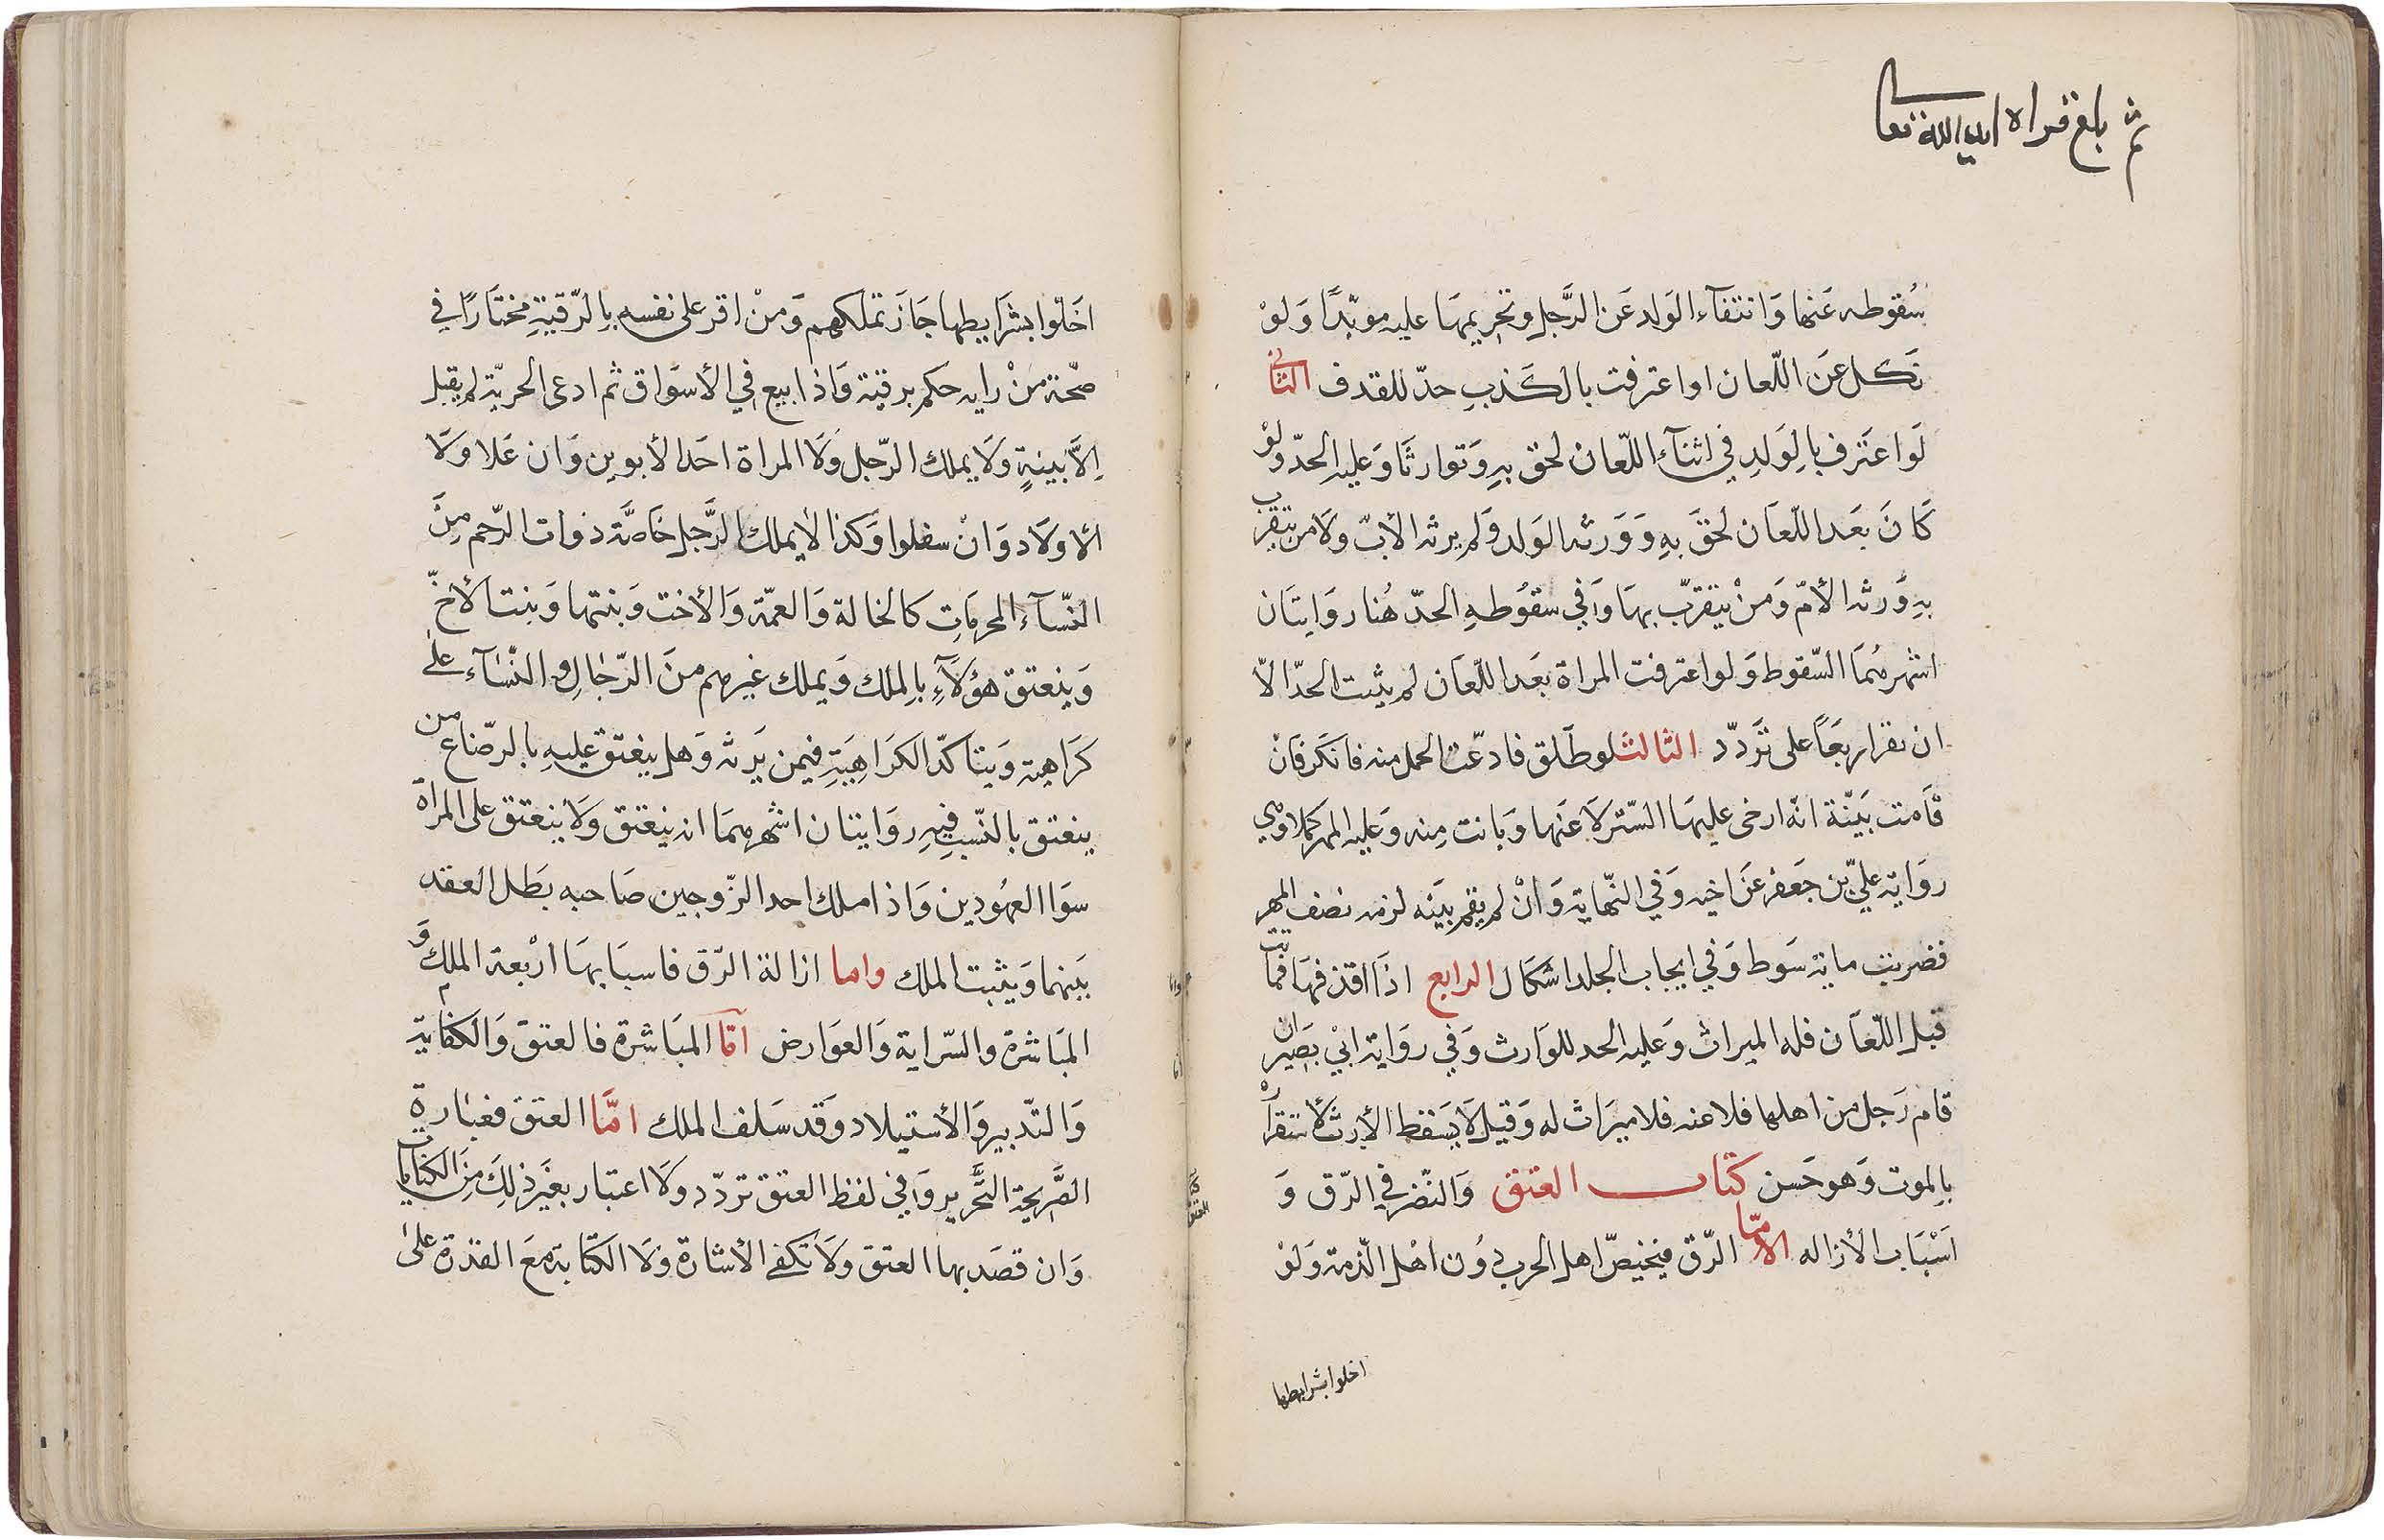 ثم بلغ قراه ايده الله تعالى
سُقوطه عَنها وَانتفآء الوَلد عَن الرَّجل وتحريمهَا عليه موبّدًا وَلوْ
نَكل عَن اللّعان او اعترفت بالكَذبِ حدّ للقدف الثاني
لَو اعتَرف بالِوَلدِ في اثنآء اللّعان لحق بهِ وَتوارثَا وَعليه الحدّ ولوْ
كَانَ بعَد اللّعَان لحقَ بهِ وَوَرثه الوَلد وَلم يرثه الأبّ ولَا من يتقرب
بهِ وَرثه الأمّ وَمنْ يتقرّب بهَا وَفي سقوُطهِ الحدّ هُنا روَايتَان
اشهرهُمَا السّقوط وَلو اعترفت المراة بعَد اللّعَان لم يثبت الحدّ الّا
ان تقر اربعَاً على تَردّد الثالث لو طَلق فادعت الحمل منه فانكَر فَانْ
قَامت بَيّنة انّه ارخى عليهَا السّتر لَاعَنها وَبانت مِنه وَعليه المهر كملا وهي
روَاية عليّ بن جَعفر عَن اخيه وَفي النّهاية وَانْ لم يقم بيَنه لزمه نصف المهر
فضربت ماية سَوط وَفي ايجاب الجلد اشكَال الرابع اذَا اقذفهَا فماتت
قبل اللّعَان فله الميراث وَعليه الحد للوَارث وَفي روَاية ابيْ بصَير ان
قام رَجل من اهلها فلاعنه فلا ميرَاث له وَقيل لَا يَسَقط الأرث لأستقراره
بالموت وَهو حَسن كتاب العتق وَالنّضر في الرّق وَ
اَسْبَاب الأزاله امّا الرّق فيختصّ اهل الحرب دوُن اهْل الّذمة وَلوْ
اخلوا بشرايطها
اخَلّوا بشرَايطها جَازَ تملكهم وَمنْ اقر على نفسه بالرّقيةِ مختَارًا في
صّحة منْ رايه حكم برقية وَاذا بيع في الأسوَاق ثم ادعى الحريّة لم يقبل
اِلاَّ بَبينةٍ ولَا يملك الرّجل وَلَا المراة احَد الأبوين وَان عَلا ولَا
الأولَاد وَانْ سفلوا وَكذا لا يملك الرَّجل خَاصَّة ذوات الرّحم مِنَ
النّسآء المحرمَاتِ كالخالة وَالعمّة وَالأخت وَبنتها وَبنت الأخّ
وَينعتق هؤلَآءِ بالملك وَيملك غيرهم منَ الرّجال وَالنّسَآء على
كَرَاهية وَيتاكدّ الكرَاهِيَةِ فيمن يَرثه وَهل ينعتق عليهِ بالرّضاع من
ينعتق بالنّسبِ فيهِ روَايتان اشهرهمَا انه ينعتق وَلَا ينعتق على المراة
سوَا العموُدين وَاذا ملك احد الزّوجين صَاحبه بطَل العقد
بَينهما وَيثبت الملك واما ازالة الرّق فاسبَابهَا ارْبعة الملك وَ
المبَاشرة والسّراية وَالعوَارض امّا المبَاشرة فالعتق وَالكتابة
وَالتّدبير وَالأستيلاد وَقد سَلف الملك امَّا العتق فعبَارة
الصَّريحة التَّحرير وَفي لفظ العتق تردّد ولَا اعتبار بغَير ذلِكَ مِنَ الكنَايات
وَان قصَد بها العتق ولَا تكفي الأشارة وَلَا الكتَابة معَ القدْرة على